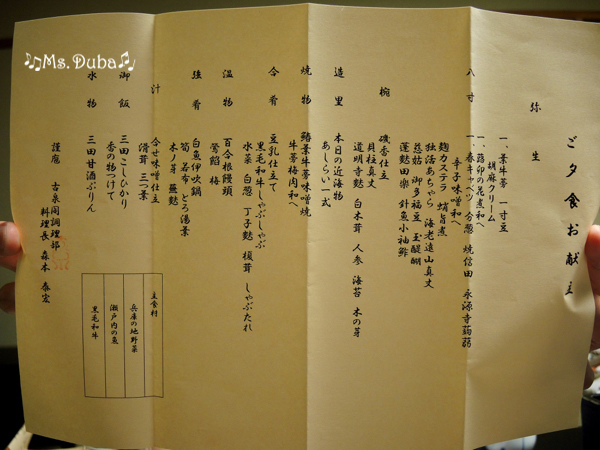 ご夕食お献立
弥生
八寸
一、葉牛蒡 一寸豆
胡麻クリーム
一、蕗印の花煮和へ
一、春キャベツ 分葱 焼信田 永源寺蒟蒻
辛子味噌和へ
麹カステラ 蛸旨煮
独活あちゃら 海老遠山真丈
慈姑 御多福豆 玉醍醐
蓮麩田楽 針魚小袖鮓
椀
磯香仕立
貝柱真丈
道明寺麩 白木茸 人参 海苔 木の芽
造里
本日の近海物
あしらい一式
焼物
鰆葉牛蒡味噌焼
牛蒡梅肉和へ
合肴
豆乳仕立て
黒毛和牛しゃぶしゃぶ
水菜 白葱 丁子麩 榎茸 しゃぶたれ
温物
百合根饅頭
鶯餡 梅
強肴
白魚伊吹鍋
筍 若布 とろ湯葉
木ノ芽 蓮麩
汁
合せ味噌仕立
滑茸 三つ葉
御飯
三田こしひかり
香の物つけて
水物
三田甘酒ぷりん
謹庵 古泉閣調理部
料理長 森本 泰宏
主食材
兵庫の地野菜
瀬戸内の魚
黒毛和牛
♫Ms.Duba♫